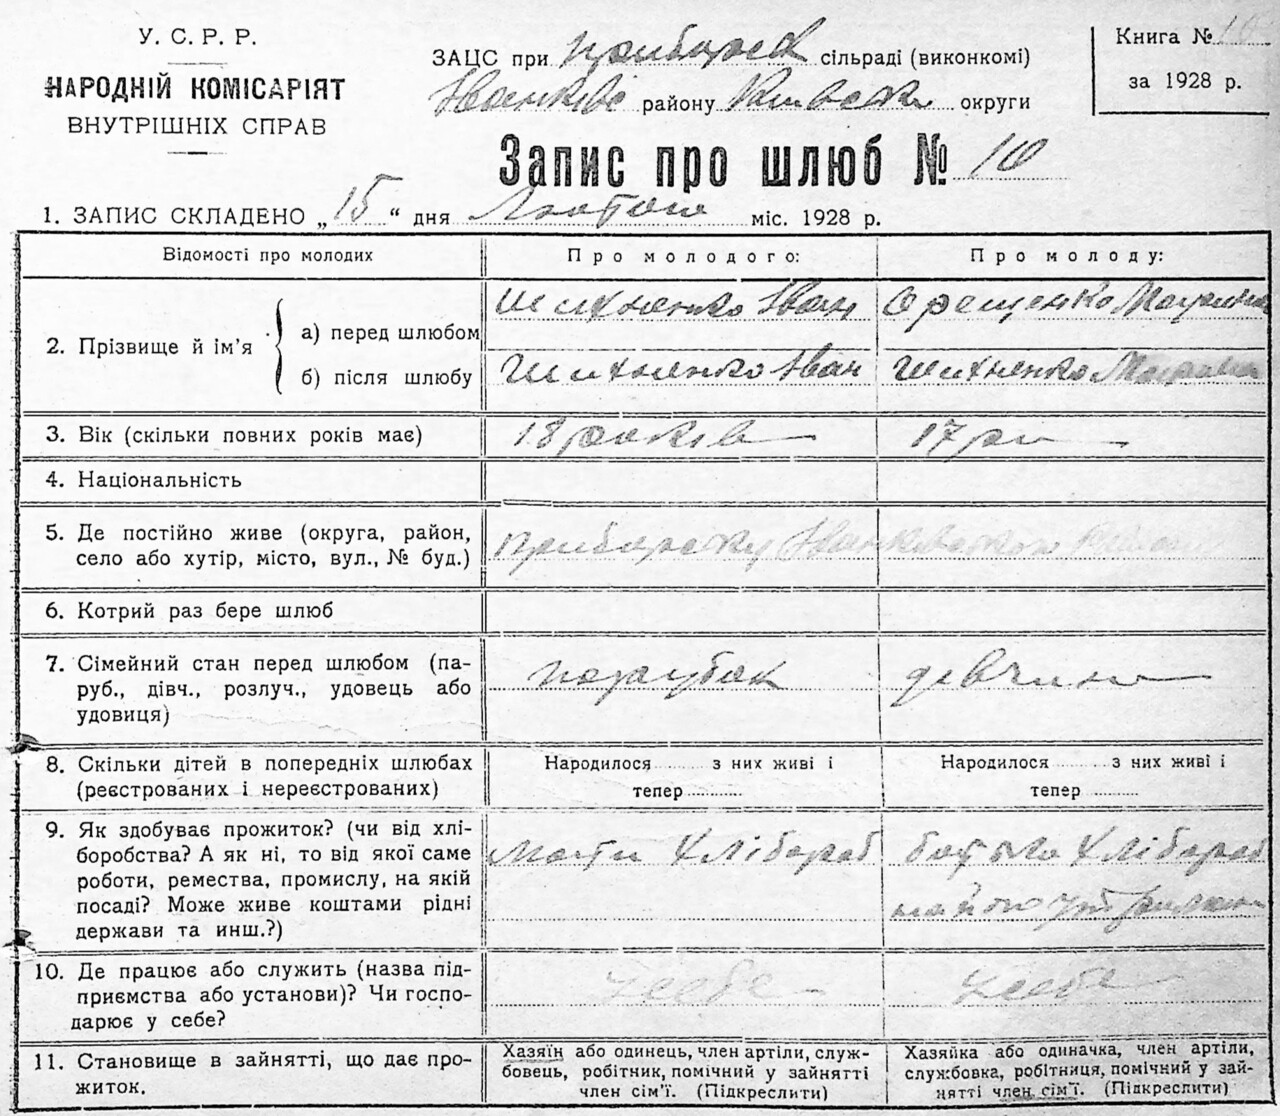 У. С. Р. Р.
НАРОДНІЙ КОМІСАРІЯТ
ВНУТРІШНІХ СПРАВ
ЗАЦС при Прибирск сільраді (виконкомі)
Іванків району Київськ округи
Книга № 10
за 1928 р.
Запис про шлюб № 10
1. ЗАПИС СКЛАДЕНО „ 15 “ дня Лютого міс. 1928 р.
Відомості про молодих Про молодого: Про молоду:
2. Прізвище й ім'я
а) перед шлюбом Шихненко Іван Орещенко
б) після шлюбу Шихненко Іван Шихненко
3. Вік (скільки повних років має) 18 років 17 ри
4. Національність
5. Де постійно живе (округа, район,
село або хутір, місто, вул., № буд.)
6. Котрий раз бере шлюб
7. Сімейний стан перед шлюбом (па-
руб., дівч., розлуч., удовець або
удовиця)
парубок девчина
8. Скільки дітей в попередніх шлюбах
(реєстрованих і нереєстрованих)
Народилося з них живі і
тепер
Народилося з них живі і
тепер
9. Як здобуває прожиток? (чи від хлі-
боробства? А як ні, то від якої саме
роботи, ремества, промислу, на якій
посаді? Може живе коштами рідні
держави та инш.?)
мати хлібороб
батько хлібороб
10. Де працює або служить (назва під-
приємства або установи)? Чи госпо-
дарює у себе?
у себе у себе
11. Становище в зайнятті, що дає про-
житок.
Хазяїн або одинець, член артіли, служ-
бовець, робітник, помічний у зайнятті
член сім'ї. (Підкреслити)
Хазяйка або одиначка, член артіли,
службовка, робітниця, помічний у зай-
нятті член сім'ї. (Підкреслити)